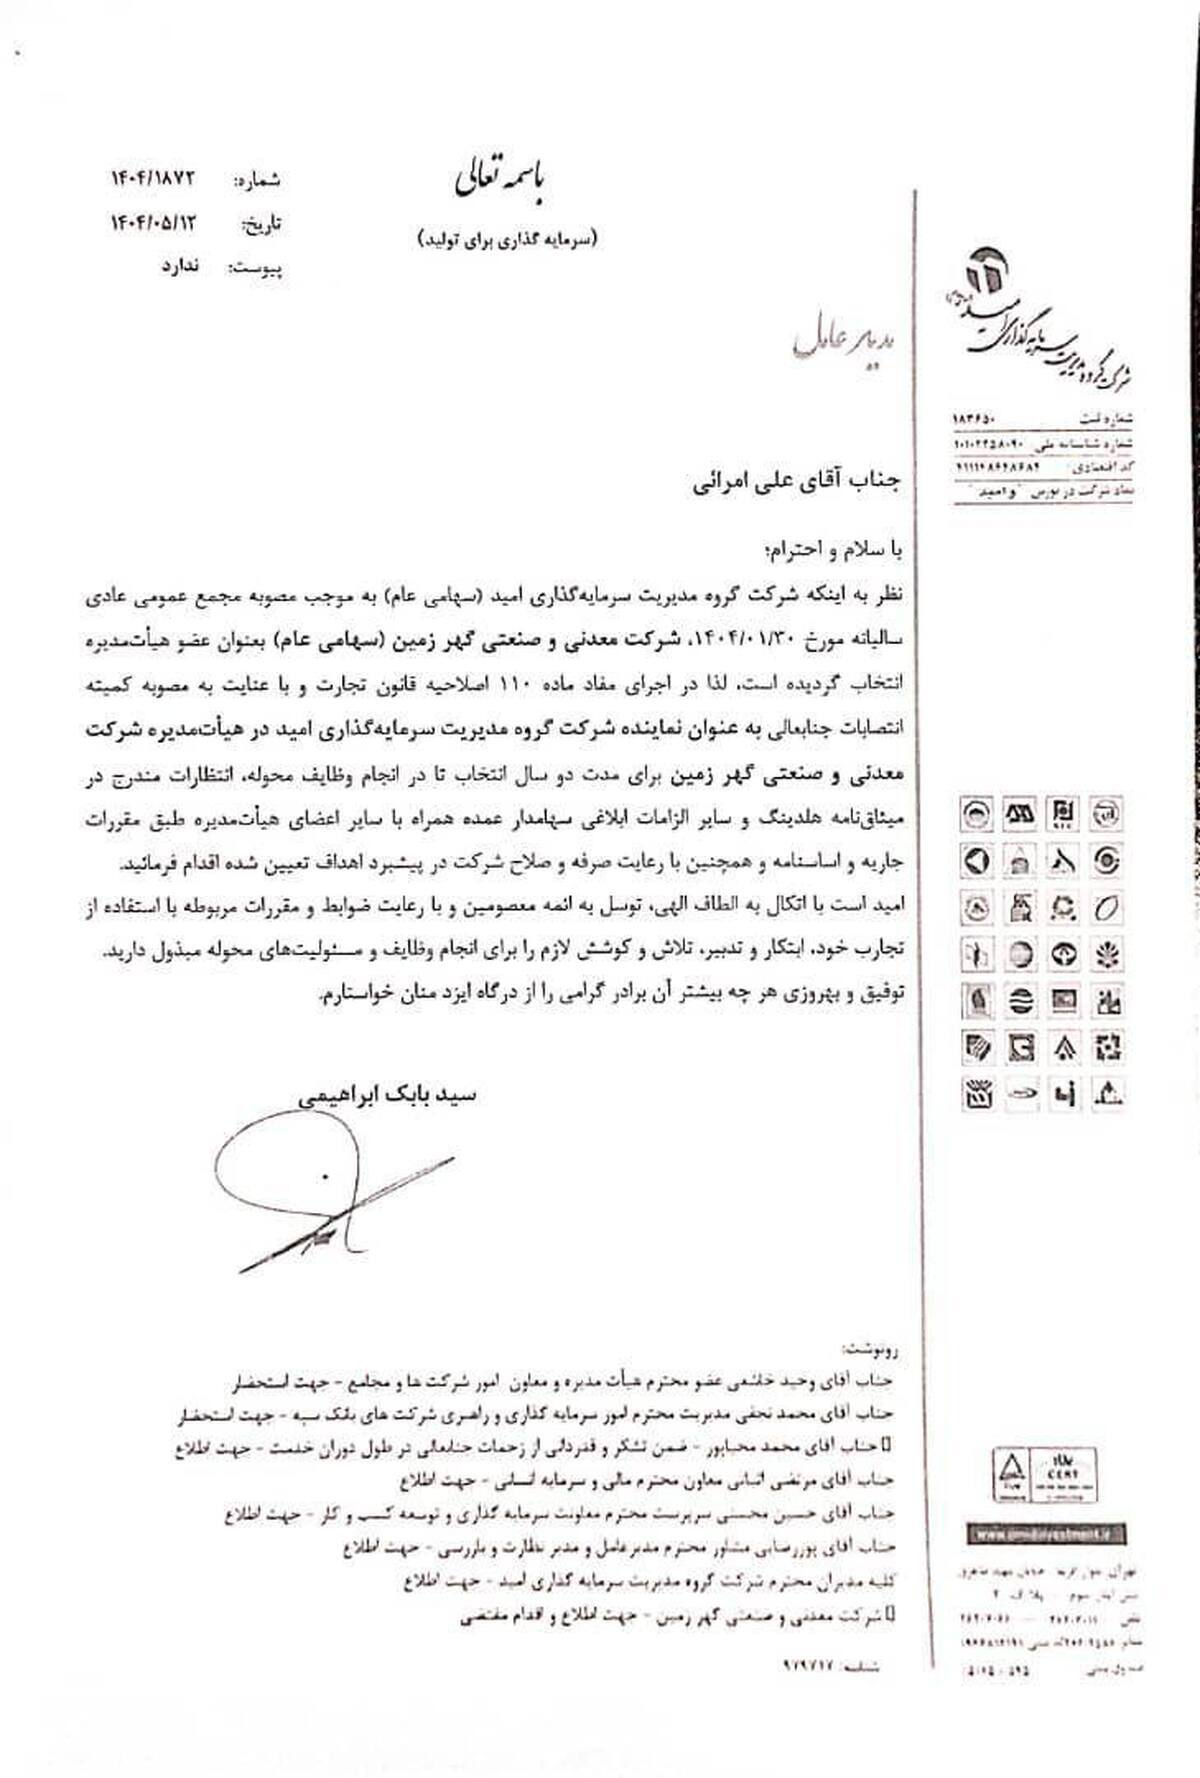 باسمه تعالی
(سرمایه گذاری برای تولید)
شماره: ۱۴۰۴/۱۸۷۲
تاریخ: ۱۴۰۴/۰۵/۱۲
پیوست: ندارد
شرکت گروه مدیریت سرمایه گذاری امید
مدیر عامل
شماره ثبت ۱۸۳۶۵۰
شماره شناسنامه ملی
کد اقتصادی
نماد شرکت در بورس "وامید"
جناب آقای علی امرائی
با سلام و احترام؛
نظر به اینکه شرکت گروه مدیریت سرمایه‌گذاری امید (سهامی عام) به موجب مصوبه مجمع عمومی عادی
سالیانه مورخ ۱۴۰۴/۰۱/۳۰، شرکت معدنی و صنعتی گهر زمین (سهامی عام) بعنوان عضو هیأت‌مدیره
انتخاب گردیده است، لذا در اجرای مفاد ماده ۱۱۰ اصلاحیه قانون تجارت و با عنایت به مصوبه کمیته
انتصابات جنابعالی به عنوان نماینده شرکت گروه مدیریت سرمایه‌گذاری امید در هیأت‌مدیره شرکت
معدنی و صنعتی گهر زمین برای مدت دو سال انتخاب تا در انجام وظایف محوله، انتظارات مندرج در
میثاق‌نامه هلدینگ و سایر الزامات ابلاغی سهامدار عمده همراه با سایر اعضای هیأت‌مدیره طبق مقررات
جاریه و اساسنامه و همچنین با رعایت صرفه و صلاح شرکت در پیشبرد اهداف تعیین شده اقدام فرمائید.
امید است با اتکال به الطاف الهی، توسل به ائمه معصومین و با رعایت ضوابط و مقررات مربوطه با استفاده از
تجارب خود، ابتکار و تدبیر، تلاش و کوشش لازم را برای انجام وظایف و مسئولیت‌های محوله مبذول دارید.
توفیق و بهروزی هر چه بیشتر آن برادر گرامی را از درگاه ایزد منان خواستارم.
سید بابک ابراهیمی
رونوشت:
جناب آقای وحید خاشعی عضو محترم هیأت مدیره و معاون امور شرکت ها و مجامع - جهت استحضار
جناب آقای محمد نجفی مدیریت محترم امور سرمایه گذاری و راهبری شرکت های بانک سپه - جهت استحضار
جناب آقای محمد محیاپور - ضمن تشکر و قدردانی از زحمات جنابعالی در طول دوران خدمت - جهت اطلاع
جناب آقای مرتضی معاون محترم مالی و سرمایه انسانی - جهت اطلاع
جناب آقای حسین محسنی سرپرست محترم معاونت سرمایه گذاری و توسعه کسب و کار - جهت اطلاع
جناب آقای پوررضایی مشاور محترم مدیرعامل و مدیر نظارت و بازرسی - جهت اطلاع
کلیه مدیران محترم شرکت گروه مدیریت سرمایه گذاری امید - جهت اطلاع
شرکت معدنی و صنعتی گهر زمین - جهت اطلاع و اقدام مقتضی
شناسه: ۹۷۹۷۱۷
CERT
www.omidinvestment.ir
تهران
تلفن